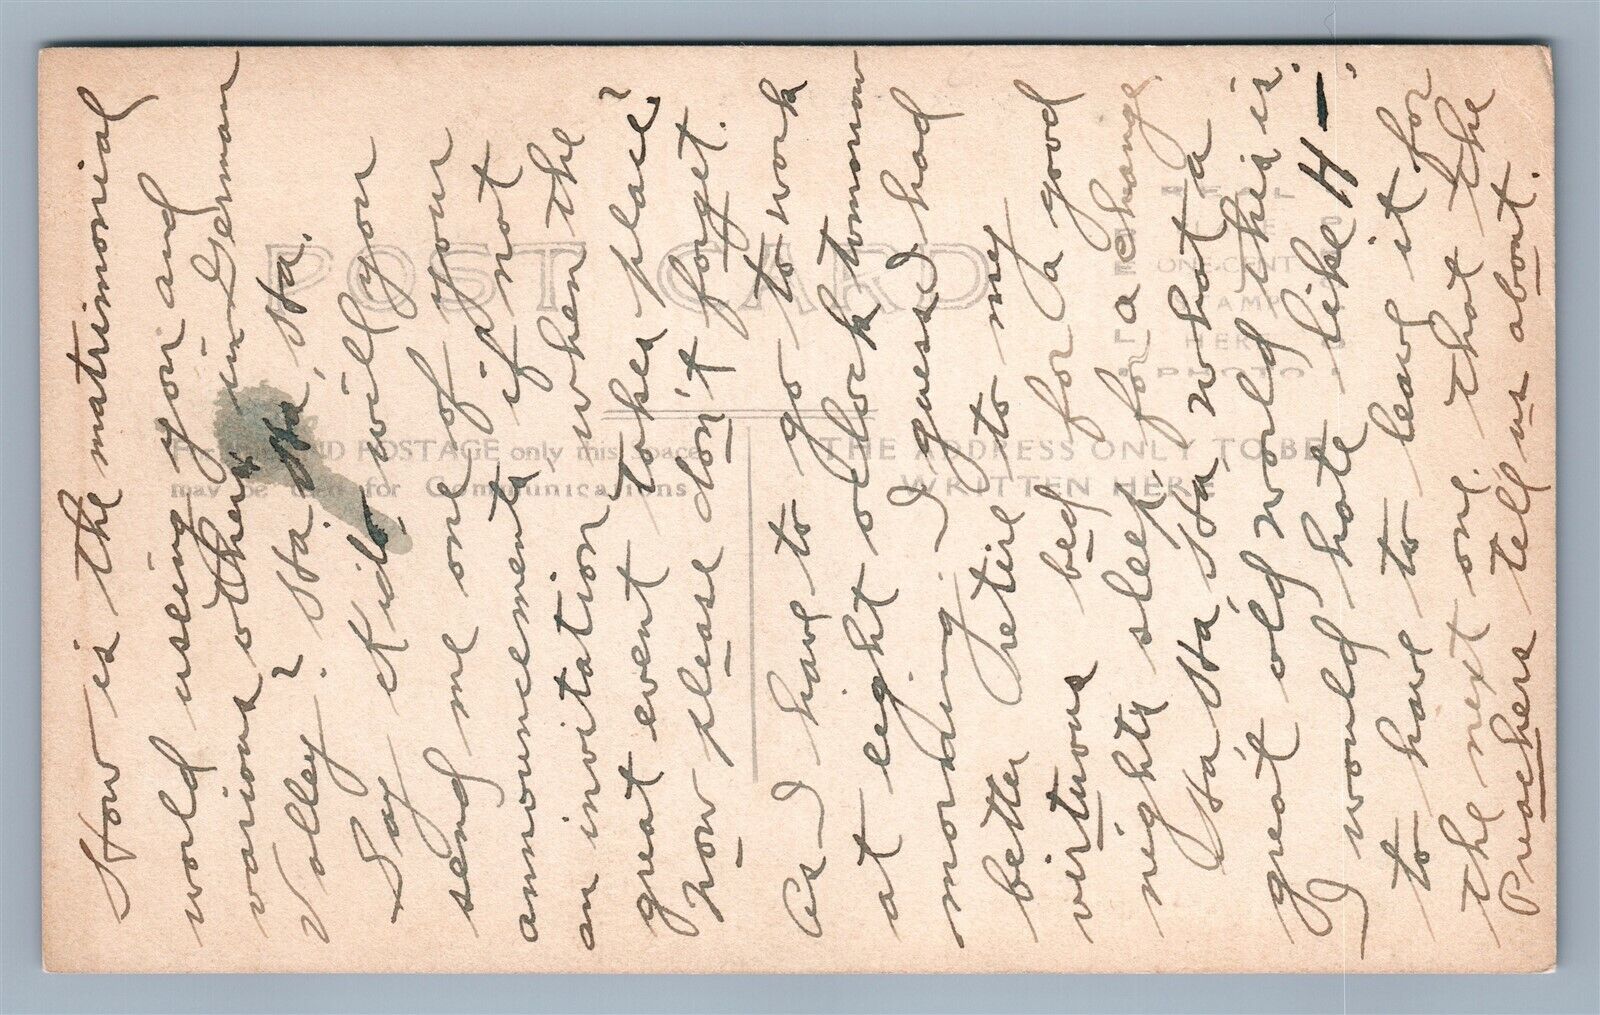 How is the matrimonial
world using you and
various others in German
Valley? Ha, Ha, Ha, Ha.
Say Kido will you
send me one of your
announcements if not
an invitation when the
great event takes place?
Now please don't forget.
As I have to go to work
at eight o'clock tomorrow
morning. I guess I had
better retire to my
virtuous bed for a good
nights sleep, for a change
Ha Ha, Ha, Ha, what a
great old world this is.
I would hate like H—'
to have to leave it for
the next one, that the
Preachers tell us about.
POST CARD
PLACE
ONE-CENT
STAMP
HERE
INLAND POSTAGE only this space
may be used for Communications
THE ADDRESS ONLY TO BE
WRITTEN HERE